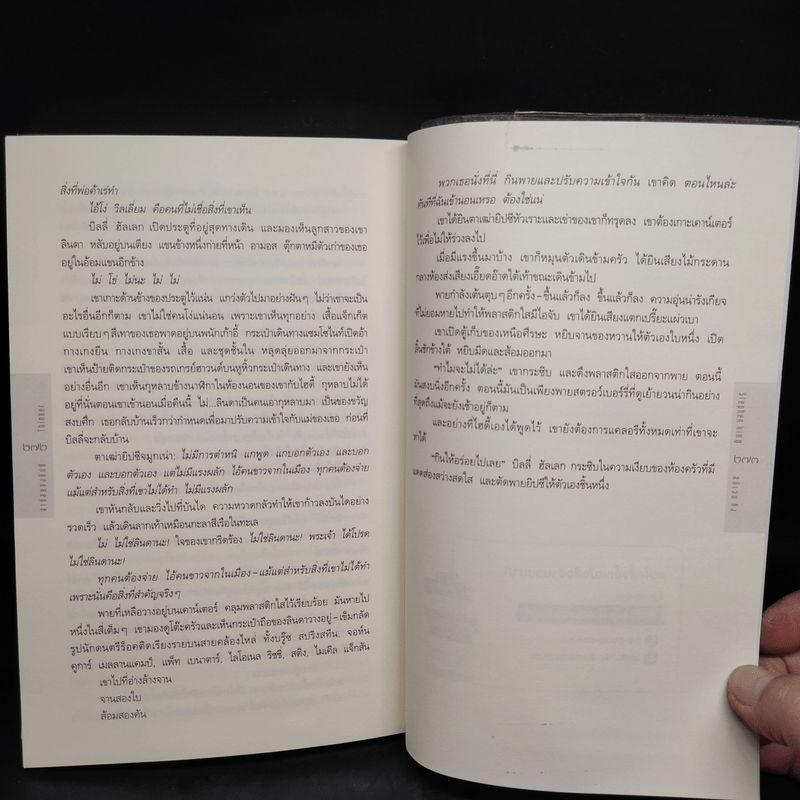 สิ่งที่พ่อค้าเร่ทำ
ไอ้โง่ วิลเลี่ยม คือคนที่ไม่เชื่อสิ่งที่เขาเห็น
บิลลี่ ฮัลเลก เปิดประตูที่อยู่สุดทางเดิน และมองเห็นลูกสาวของเขา
ลินดา หลับอยู่บนเตียง แขนข้างหนึ่งก่ายที่หน้า อามอส ตุ๊กตาหมีตัวเก่าของเธอ
อยู่ในอ้อมแขนอีกข้าง
ไม่ โซ่ ไม่นะ ไม่ ไม่
เขาเกาะด้านข้างของประตูไว้แน่น แกว่งตัวไปมาอย่างฝันๆ ไม่ว่าเขาจะเป็น
อะไรอื่นอีกก็ตาม เขาไม่ใช่คนโง่แน่นอน เพราะเขาเห็นทุกอย่าง เสื้อแจ็กเก็ต
แบบเรียบๆ สีเทาของเธอพาดอยู่บนพนักเก้าอี้ กระเป๋าเดินทางแซมโซไนท์เปิดอ้า
กางเกงยีน กางเกงขาสั้น เสื้อ และชุดชั้นใน หลุดลุ่ยออกมาจากกระเป๋า
เขาเห็นป้ายติดกระเป๋าของรถเกรย์ฮาวนด์บนหูหิ้วกระเป๋าเดินทาง และเขายังเห็น
อย่างอื่นอีก เขาเห็นกุหลาบข้างนาฬิกาในห้องนอนของเขากับไฮดี้ กุหลาบไม่ได้
อยู่ที่นั่นตอนเขาเข้านอนเมื่อคืนนี้ ไม่...ลินดาเป็นคนเอากุหลาบมา เป็นของขวัญ
สงบศึก เธอกลับบ้านเร็วกว่ากำหนดเพื่อมาปรับความเข้าใจกับแม่ของเธอ ก่อนที่
บิลลี่จะกลับบ้าน
ตาเฒ่ายิปซีจมูกเน่า: ไม่มีการตำหนิ แกพูด แกบอกตัวเอง และบอก
ตัวเอง และบอกตัวเอง แต่ไม่มีแรงผลัก ไอ้คนขาวจากในเมือง ทุกคนต้องจ่าย
แม้แต่สำหรับสิ่งที่เขาไม่ได้ทำ ไม่มีแรงผลัก
เขาหันกลับและวิ่งไปที่บันได ความหวาดกลัวทำให้เขาก้าวลงบันไดอย่าง
รวดเร็ว แล้วเดินลากเท้าเหมือนกะลาสีเรือในทะเล
ไม่ ไม่ใช่ลินดานะ! ใจของเขากรีดร้อง ไม่ใช่ลินดานะ! พระเจ้า ได้โปรด
ไม่ใช่ลินดานะ!
ทุกคนต้องจ่าย ไอ้คนขาวจากในเมือง–แม้แต่สำหรับสิ่งที่เขาไม่ได้ทำ
เพราะนั่นคือสิ่งที่สำคัญจริงๆ
พายที่เหลือวางอยู่บนเคาน์เตอร์ คลุมพลาสติกใสไว้เรียบร้อย มันหายไป
หนึ่งในสี่เต็มๆ เขามองดูโต๊ะครัวและเห็นกระเป๋าถือของลินดาวางอยู่–เข็มกลัด
รูปนักดนตรีร็อคติดเรียงรายบนสายคล้องไหล่ ทั้งบรู๊ซ สปริงสทีน, จอห์น
คูการ์ เมลลานแคมป์, แพ็ท เบนาตาร์, ไลโอเนล ริชชี่, สติง, ไมเคิล แจ็กสัน
เขาไปที่อ่างล้างจาน
จานสองใบ
ส้อมสองคัน
๒๓๒
พวกเธอนั่งที่นี่ กินพายและปรับความเข้าใจกัน เขาคิด ตอนไหนล่ะ
ทันทีที่ฉันเข้านอนเหรอ ต้องใช่แน่
เขาได้ยินตาเฒ่ายิปซีหัวเราะและเข่าของเขาก็ทรุดลง เขาต้องเกาะเคาน์เตอร์
ไว้เพื่อไม่ให้ร่วงลงไป
เมื่อมีแรงขึ้นมาบ้าง เขาก็หมุนตัวเดินข้ามครัว ได้ยินเสียงไม้กระดาน
กลางห้องส่งเสียงเอี๊ยดอ๊าดใต้เท้าขณะเดินข้ามไป
พายกำลังเต้นตุบๆ อีกครั้ง–ขึ้นแล้วก็ลง ขึ้นแล้วก็ลง ความอุ่นน่ารังเกียจ
ที่ไม่ยอมหายไปทำให้พลาสติกใสมีไอจับ เขาได้ยินเสียงแตกเปรี๊ยะแผ่วเบา
เขาเปิดตู้เก็บของเหนือศีรษะ หยิบจานของหวานให้ตัวเองใบหนึ่ง เปิด
ลิ้นชักข้างใต้ หยิบมีดและส้อมออกมา
“ทำไมจะไม่ได้ล่ะ” เขากระซิบ และดึงพลาสติกใสออกจากพาย ตอนนี้
มันสงบนิ่งอีกครั้ง ตอนนี้มันเป็นเพียงพายสตรอว์เบอร์รี่ที่ดูเย้ายวนน่ากินอย่าง
ที่สุดถึงแม้จะยังเช้าอยู่ก็ตาม
และอย่างที่ไฮดี้เองได้พูดไว้ เขายังต้องการแคลอรีทั้งหมดเท่าที่เขาจะ
หาได้
“กินให้อร่อยไปเลย” บิลลี่ ฮัลเลก กระซิบในความเงียบของห้องครัวที่มี
แดดส่องสว่างสดใส และตัดพายยิปซีให้ตัวเองชิ้นหนึ่ง
Stephen King
๒๓๓